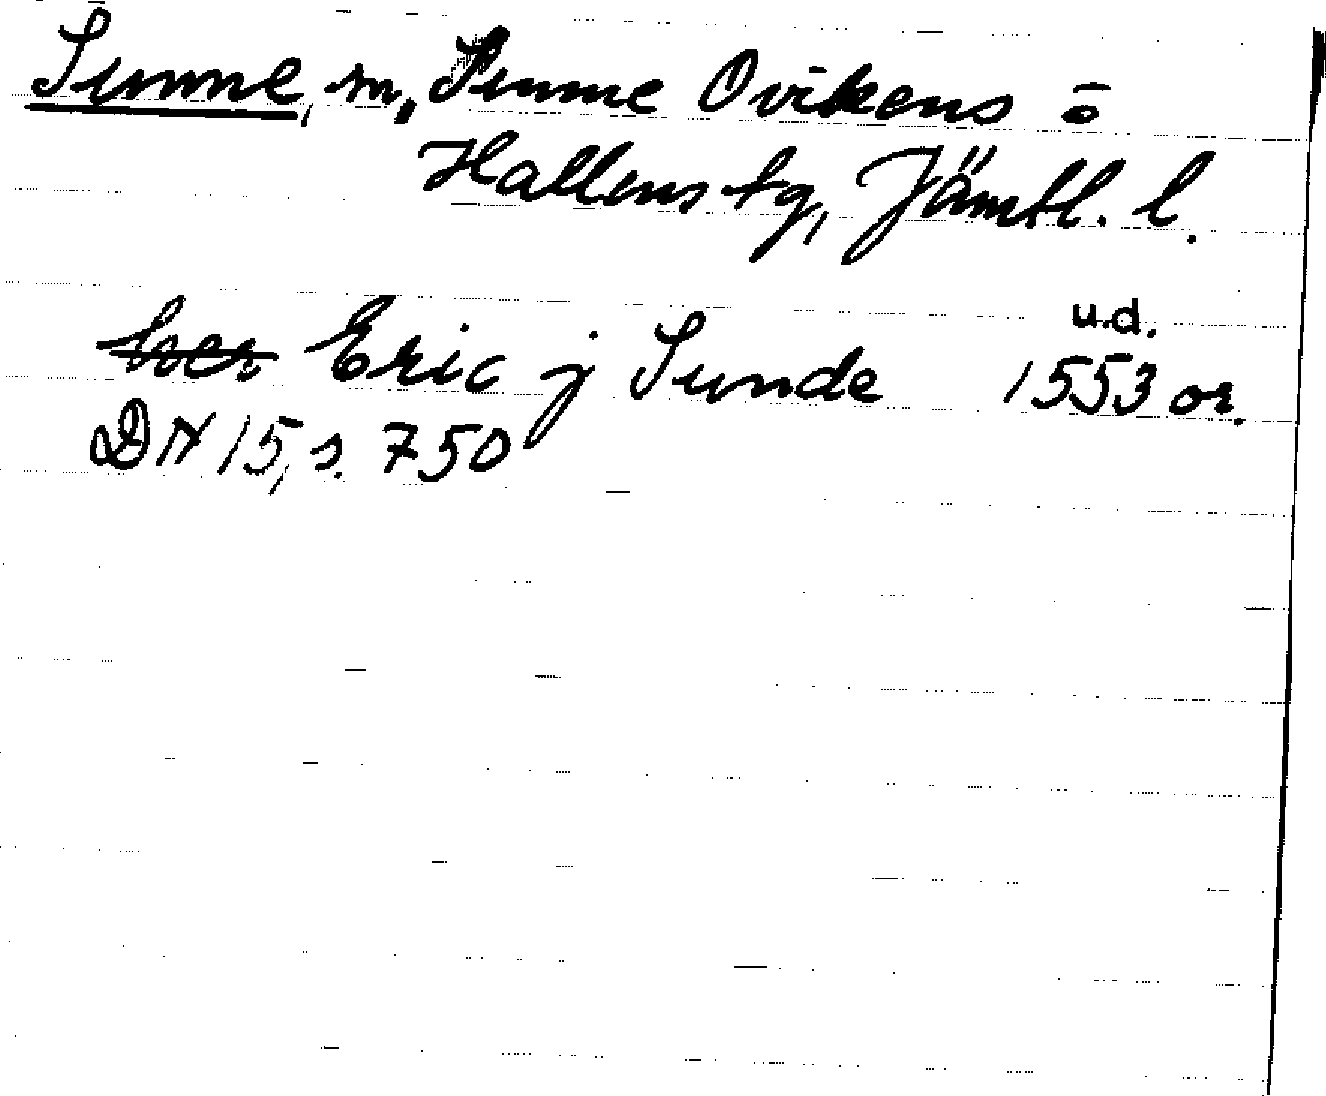 Sunne, sn, Sunne Ovikens o
Hallens tg, Jämtl. l.
u.d.
her Eric j Sunde 1553 or.
DN 15, s. 750